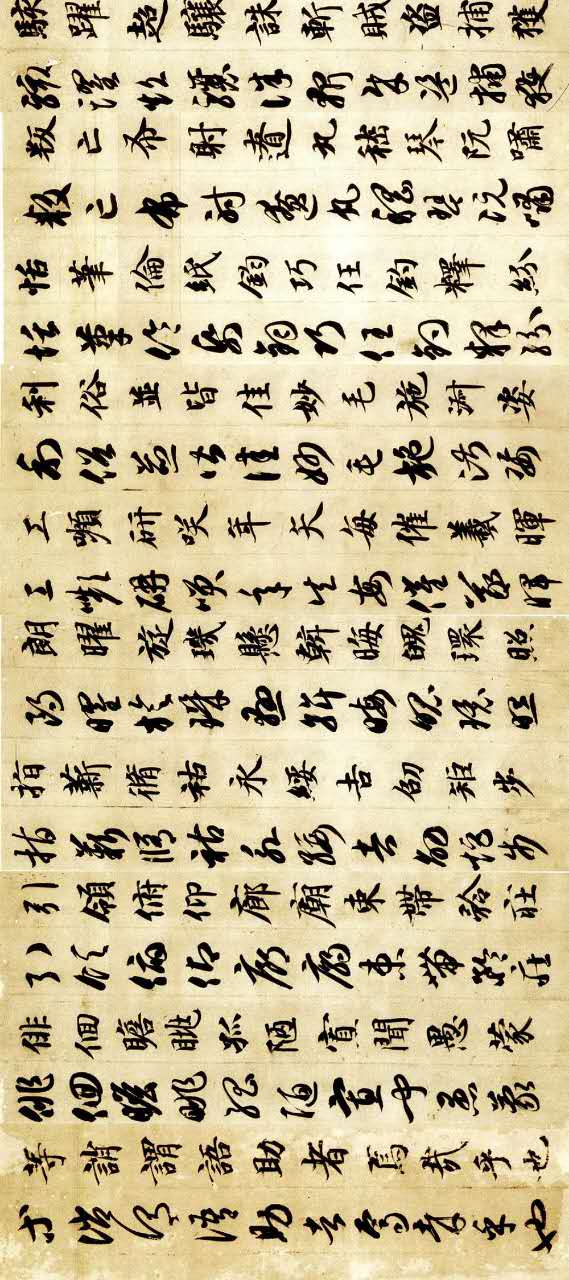 駭躍超驤誅斬賊盜捕獲
駭躍超驤誅斬賊盜捕獲
叛亡布射遼丸嵇琴阮嘯
叛亡布射遼丸嵇琴阮嘯
恬筆倫紙鈞巧任釣釋紛
恬筆倫紙鈞巧任釣釋紛
利俗並皆佳妙毛施淑姿
利俗並皆佳妙毛施淑姿
工嚬研咲年矢每催羲暉
工嚬研咲年矢每催羲暉
朗曜旋璣懸斡晦魄環照
朗曜旋璣懸斡晦魄環照
指薪脩祐永綏吉劭矩步
指薪脩祐永綏吉劭矩步
引領俯仰廊廟束帶矜莊
引領俯仰廊廟束帶矜莊
俳佪瞻眺孤陋寡聞愚蒙
俳佪瞻眺孤陋寡聞愚蒙
等誚謂語助者焉哉乎也
等誚謂語助者焉哉乎也